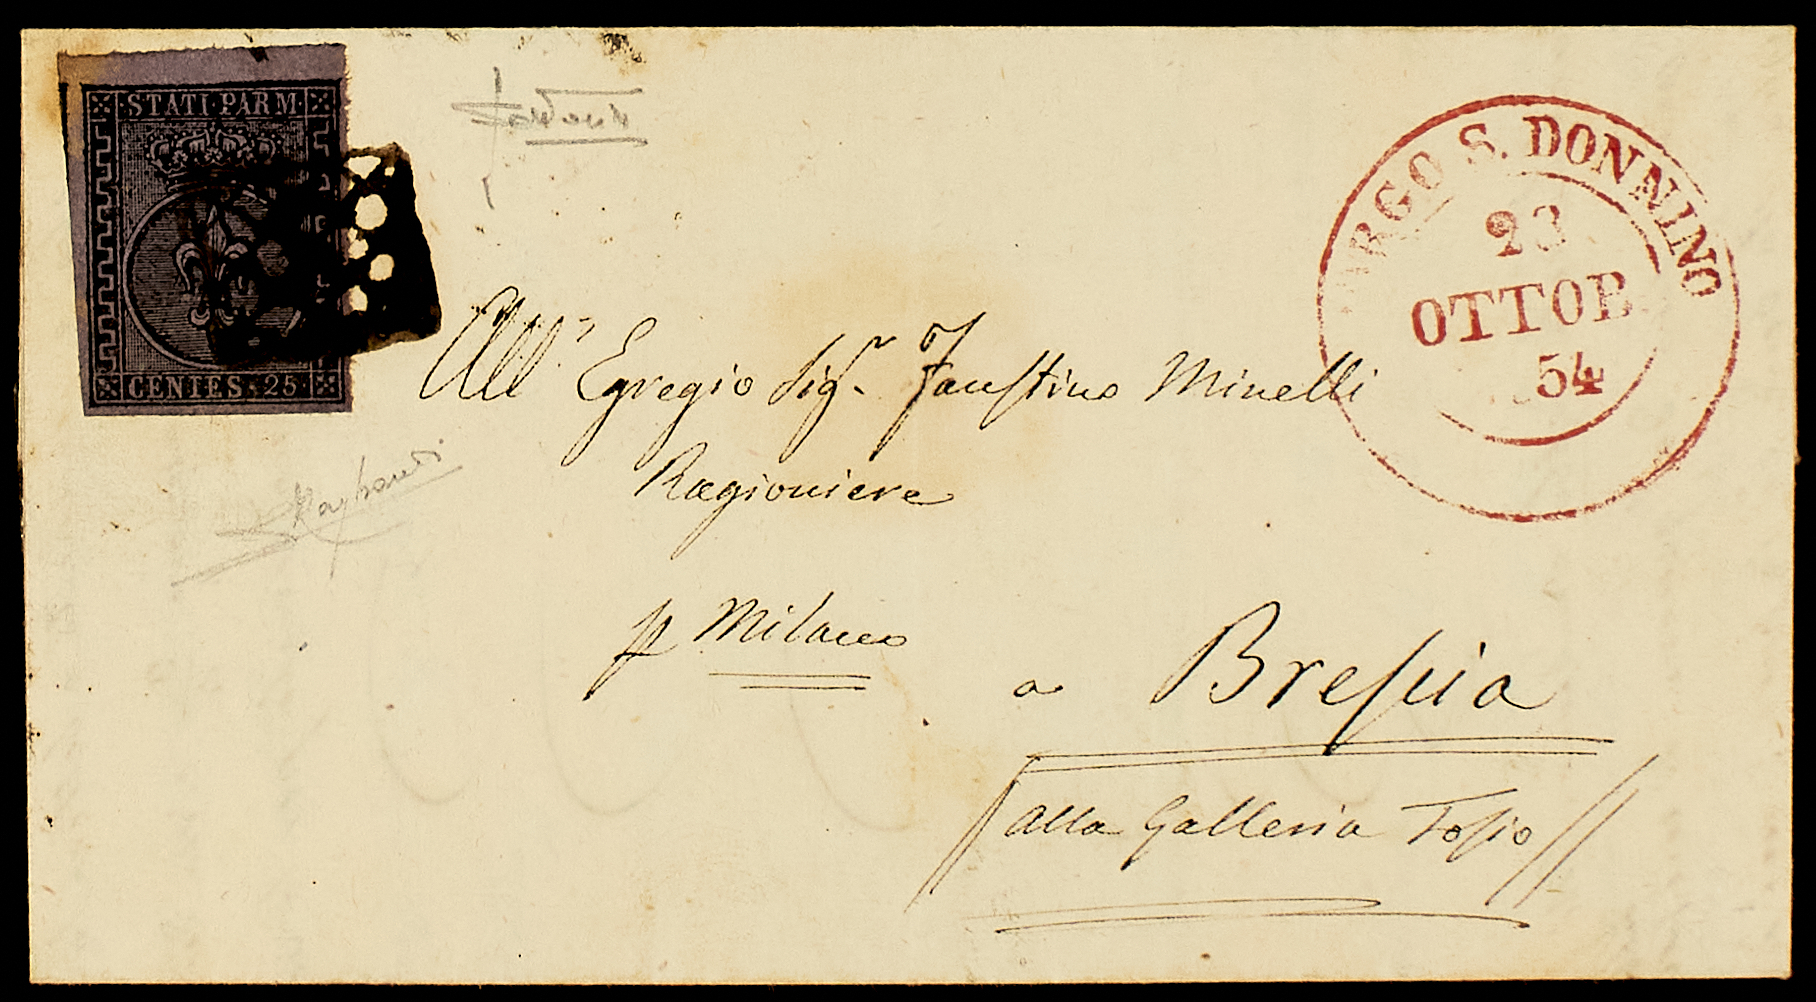 STATI PARM.
CENTES. 25
BORGO S. DONNINO
23
OTTOB.
54
All' Egregio Sigr. Faustino Minelli
Ragioniere
p Milano
a Brescia
alla Galleria Tosio
Raybaudi